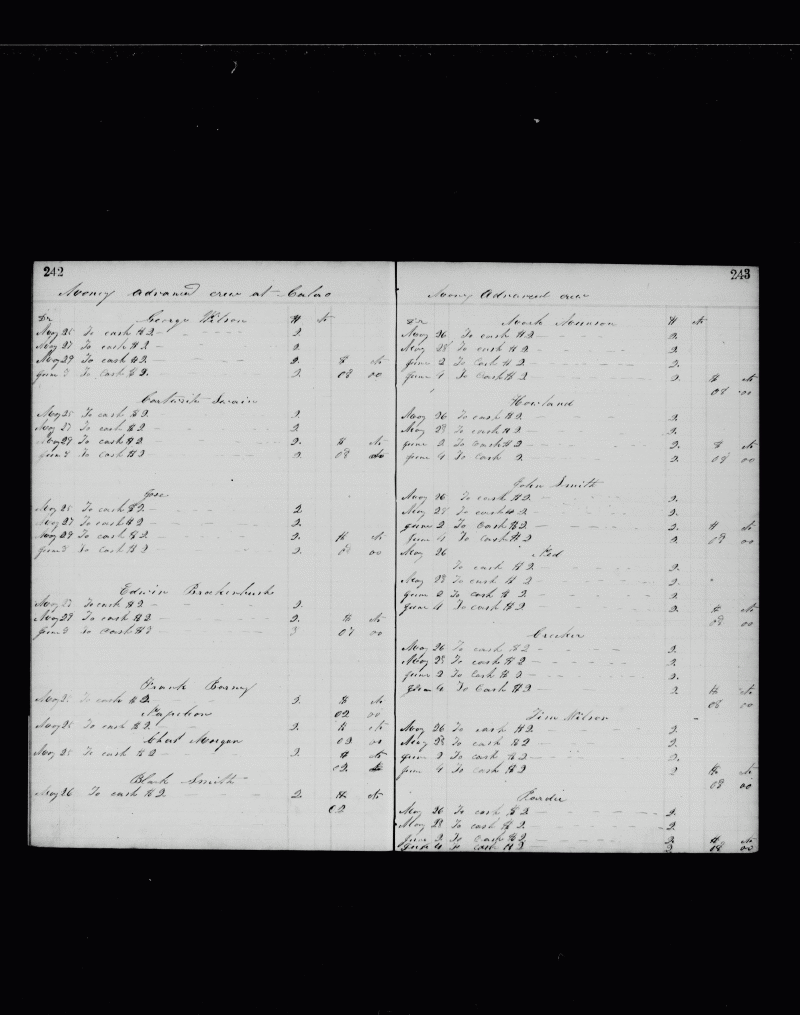 242
Money advanced crew at Calao
Dr George Wilson $ cts
May 25 To cash $2 2.
May 27 To cash $2 2.
May 29 To cash $2. 2. $ cts
June 2 To Cash $2. 2. 08 00
Swain
May 25 To cash $2. 2
May 27 To cash $2 2.
May 29 To cash $2. 2. $ cts
June 2 To cash $2 2. 08
Jose
May 25 To cash $2. 2
May 27 To cash $2 2.
May 29 To cash $2. 2. $ cts
June 2 To cash $2 2. 08 00
Edwin
May 27 To cash $2. 2.
May 29 To cash $2. 2. $ cts
June 2 To Cash $3 3 07 00
Frank
May 25 To cash $2. 2. $ cts
Napoleon 02 00
May 25 To cash $2. 2. $ cts
Morgan 02 00
May 25 To cash $2 2. $ cts
02
Black Smith
May 26 To cash $2. 2 $ cts
02
243
Money Advanced crew
Dr Mark $ cts
May 26 To cash $2 2.
May 28 To cash $2. 2.
June 2 To Cash $2. 2.
June 4 To Cash $2 2. $ cts
08 00
Howland
May 26 To cash $2 2.
May 28 To cash $2. 2.
June 2 To cash $2 2. $ cts
June 4 To Cash 2. 2. 08 00
John Smith
May 26 To cash $2. 2.
May 28 To cash $2 2.
June 2 To Cash $2. 2. $ cts
June 4 To Cash $2 2. 08 00
May 26 Ned
To cash $2. 2.
May 28 To cash $2 2.
June 2 To cash $2. 2.
June 4 To cash $2 2. $ cts
08 00
May 26 To cash $2 2.
May 28 To cash $2 2.
June 2 To Cash $2 2.
June 4 To Cash $2 2. $ cts
08 00
Wilson
May 26 To cash $2 2.
May 28 To cash $2 2.
June 2 To cash $2 2.
June 4 To cash $2 2 $ cts
08 00
May 26 To cash $2 2.
May 28 To cash $2. 2.
June 2 To Cash $2 2. $ cts
June 4 To Cash $2. 2. 08 00